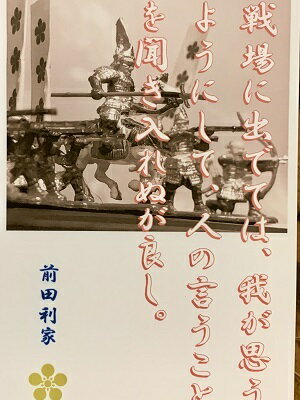 戦場に出でては、我が思う
ようにして、人の言うこと
を聞き入れぬが良し。
前田利家